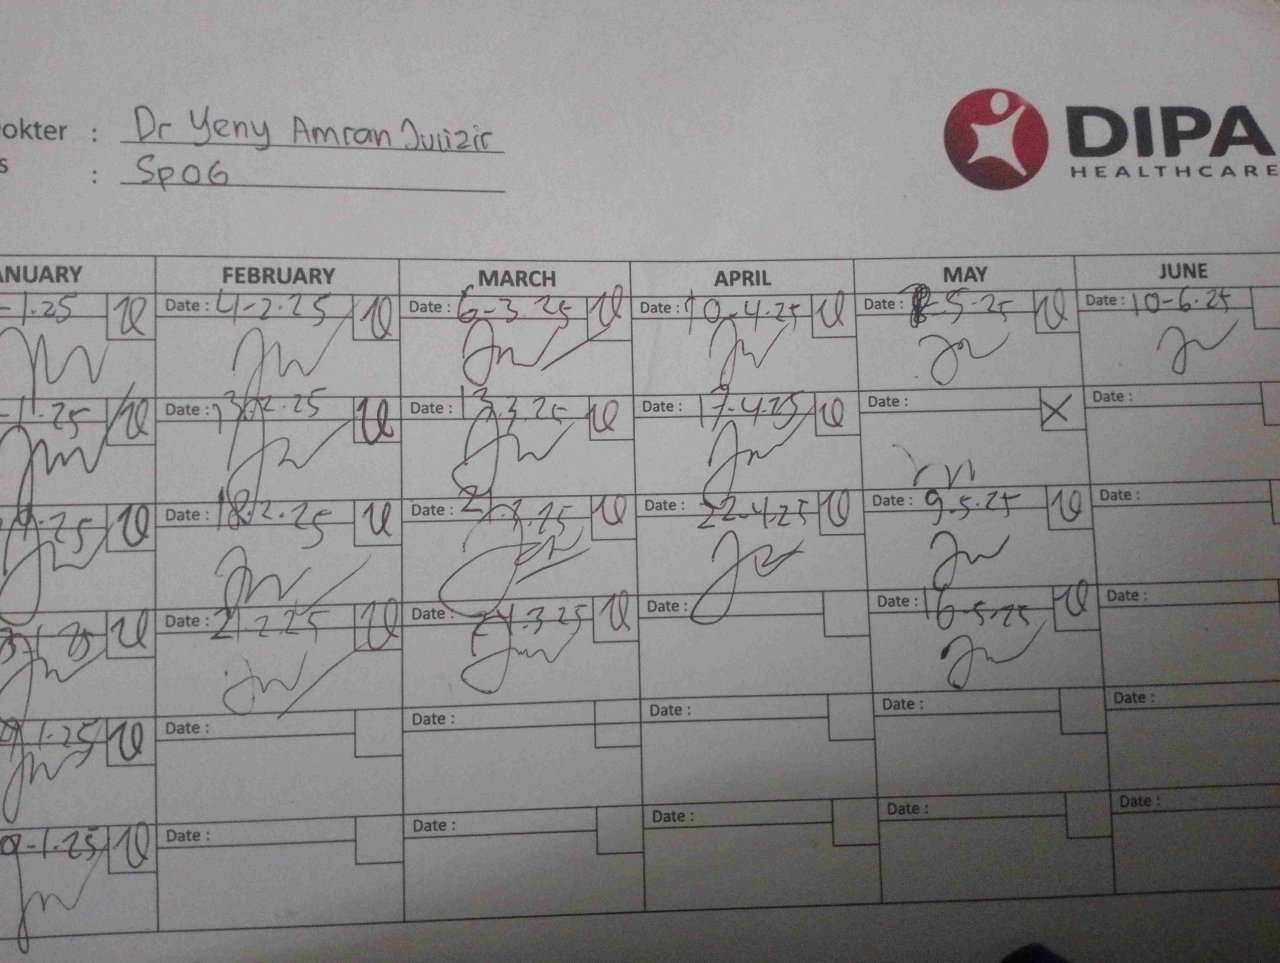 okter : Dr Yeny Amran
s : SpOG
DIPA
HEALTHCARE
ANUARY FEBRUARY MARCH APRIL MAY JUNE
-1.25 Date : 4-2.25 Date : 6-3.25 Date : 10-4.25 Date : -5.25 Date : 10-6.25
-1.25 Date : 13.2.25 Date : 13.3.25 Date : 17-4.25 Date : Date :
.25 Date : 18.2.25 Date : 21.3.25 Date : 22-4.25 Date : 9-5.25 Date :
Date : 21.2.25 Date : 24.3.25 Date : Date : 16-5.25 Date :
1.25 Date : Date : Date : Date : Date :
-1.25 Date : Date : Date : Date : Date :